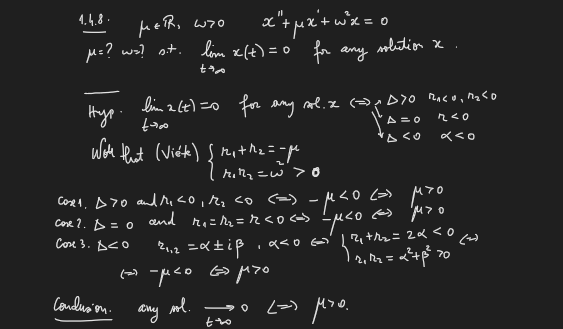 1.4.8. μ∈ℝ, ω>0 x''+μx'+ω²x=0
μ=? ω=? s.t. lim x(t)=0 for any solution x.
t→∞
Hyp. lim x(t)=0 for any sol. x ⟺ Δ>0 r₁<0, r₂<0
t→∞ Δ=0 r<0
Δ<0 α<0
Note that (Viète) { r₁+r₂=-μ
r₁r₂=ω²>0
Case 1. Δ>0 and r₁<0, r₂<0 ⟺ -μ<0 ⟺ μ>0
Case 2. Δ=0 and r₁=r₂=r<0 ⟺ -μ<0 ⟺ μ>0
Case 3. Δ<0 r₁,₂=α±iβ, α<0 ⟺ { r₁+r₂=2α<0 ⟺
r₁r₂=α²+β²>0
⟺ -μ<0 ⟺ μ>0
Conclusion. any sol. ⟶ 0 ⟺ μ>0.
t→∞